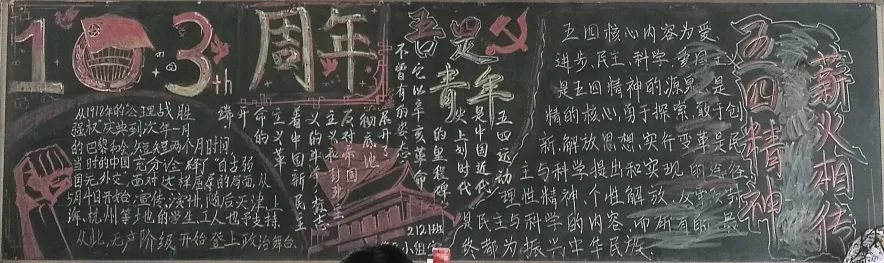 103th
周年
从1918年的公理战胜
强权庆典到次年一月
的巴黎和会短短两个月时间
当时的中国充分诠释了"自古弱
国无外交"
从
5月4日开始
海、杭州等地的学生,工人也予支持
从此,无产阶级开始登上政治舞台.
吾是
青年
五四运动
是中国近代
史上划时代
的里程碑
它以辛亥革命
不曾有的姿态
展开了
彻底地
反对帝国
主义和封建主
义的斗争,标志
着中国新民主
主义革
命的
开
端
212班
五四核心内容为爱
进步,民主,科学,爱国主义
是五四精神的源泉
精的核心,勇于探索,敢于创
新,解放思想,实行变革是民
主与科学提出和实现的途径
理性精神,个性解放,反
民主与科学的内容,而所有的,最
终都为振兴中华民族.
五四精神
薪火相传